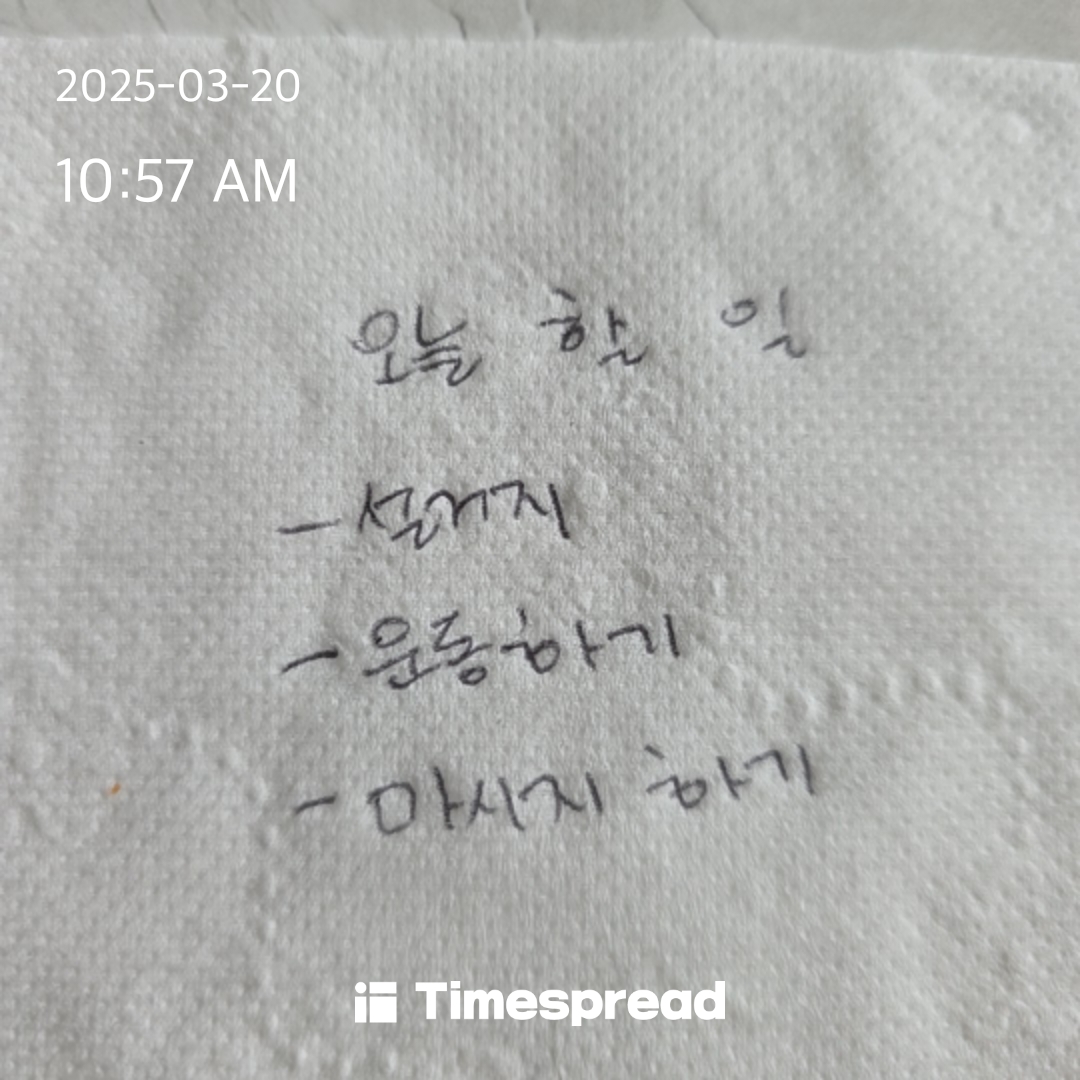 2025-03-20
10:57 AM
오늘 할 일
- 설거지
- 운동하기
- 마사지 하기
Timespread